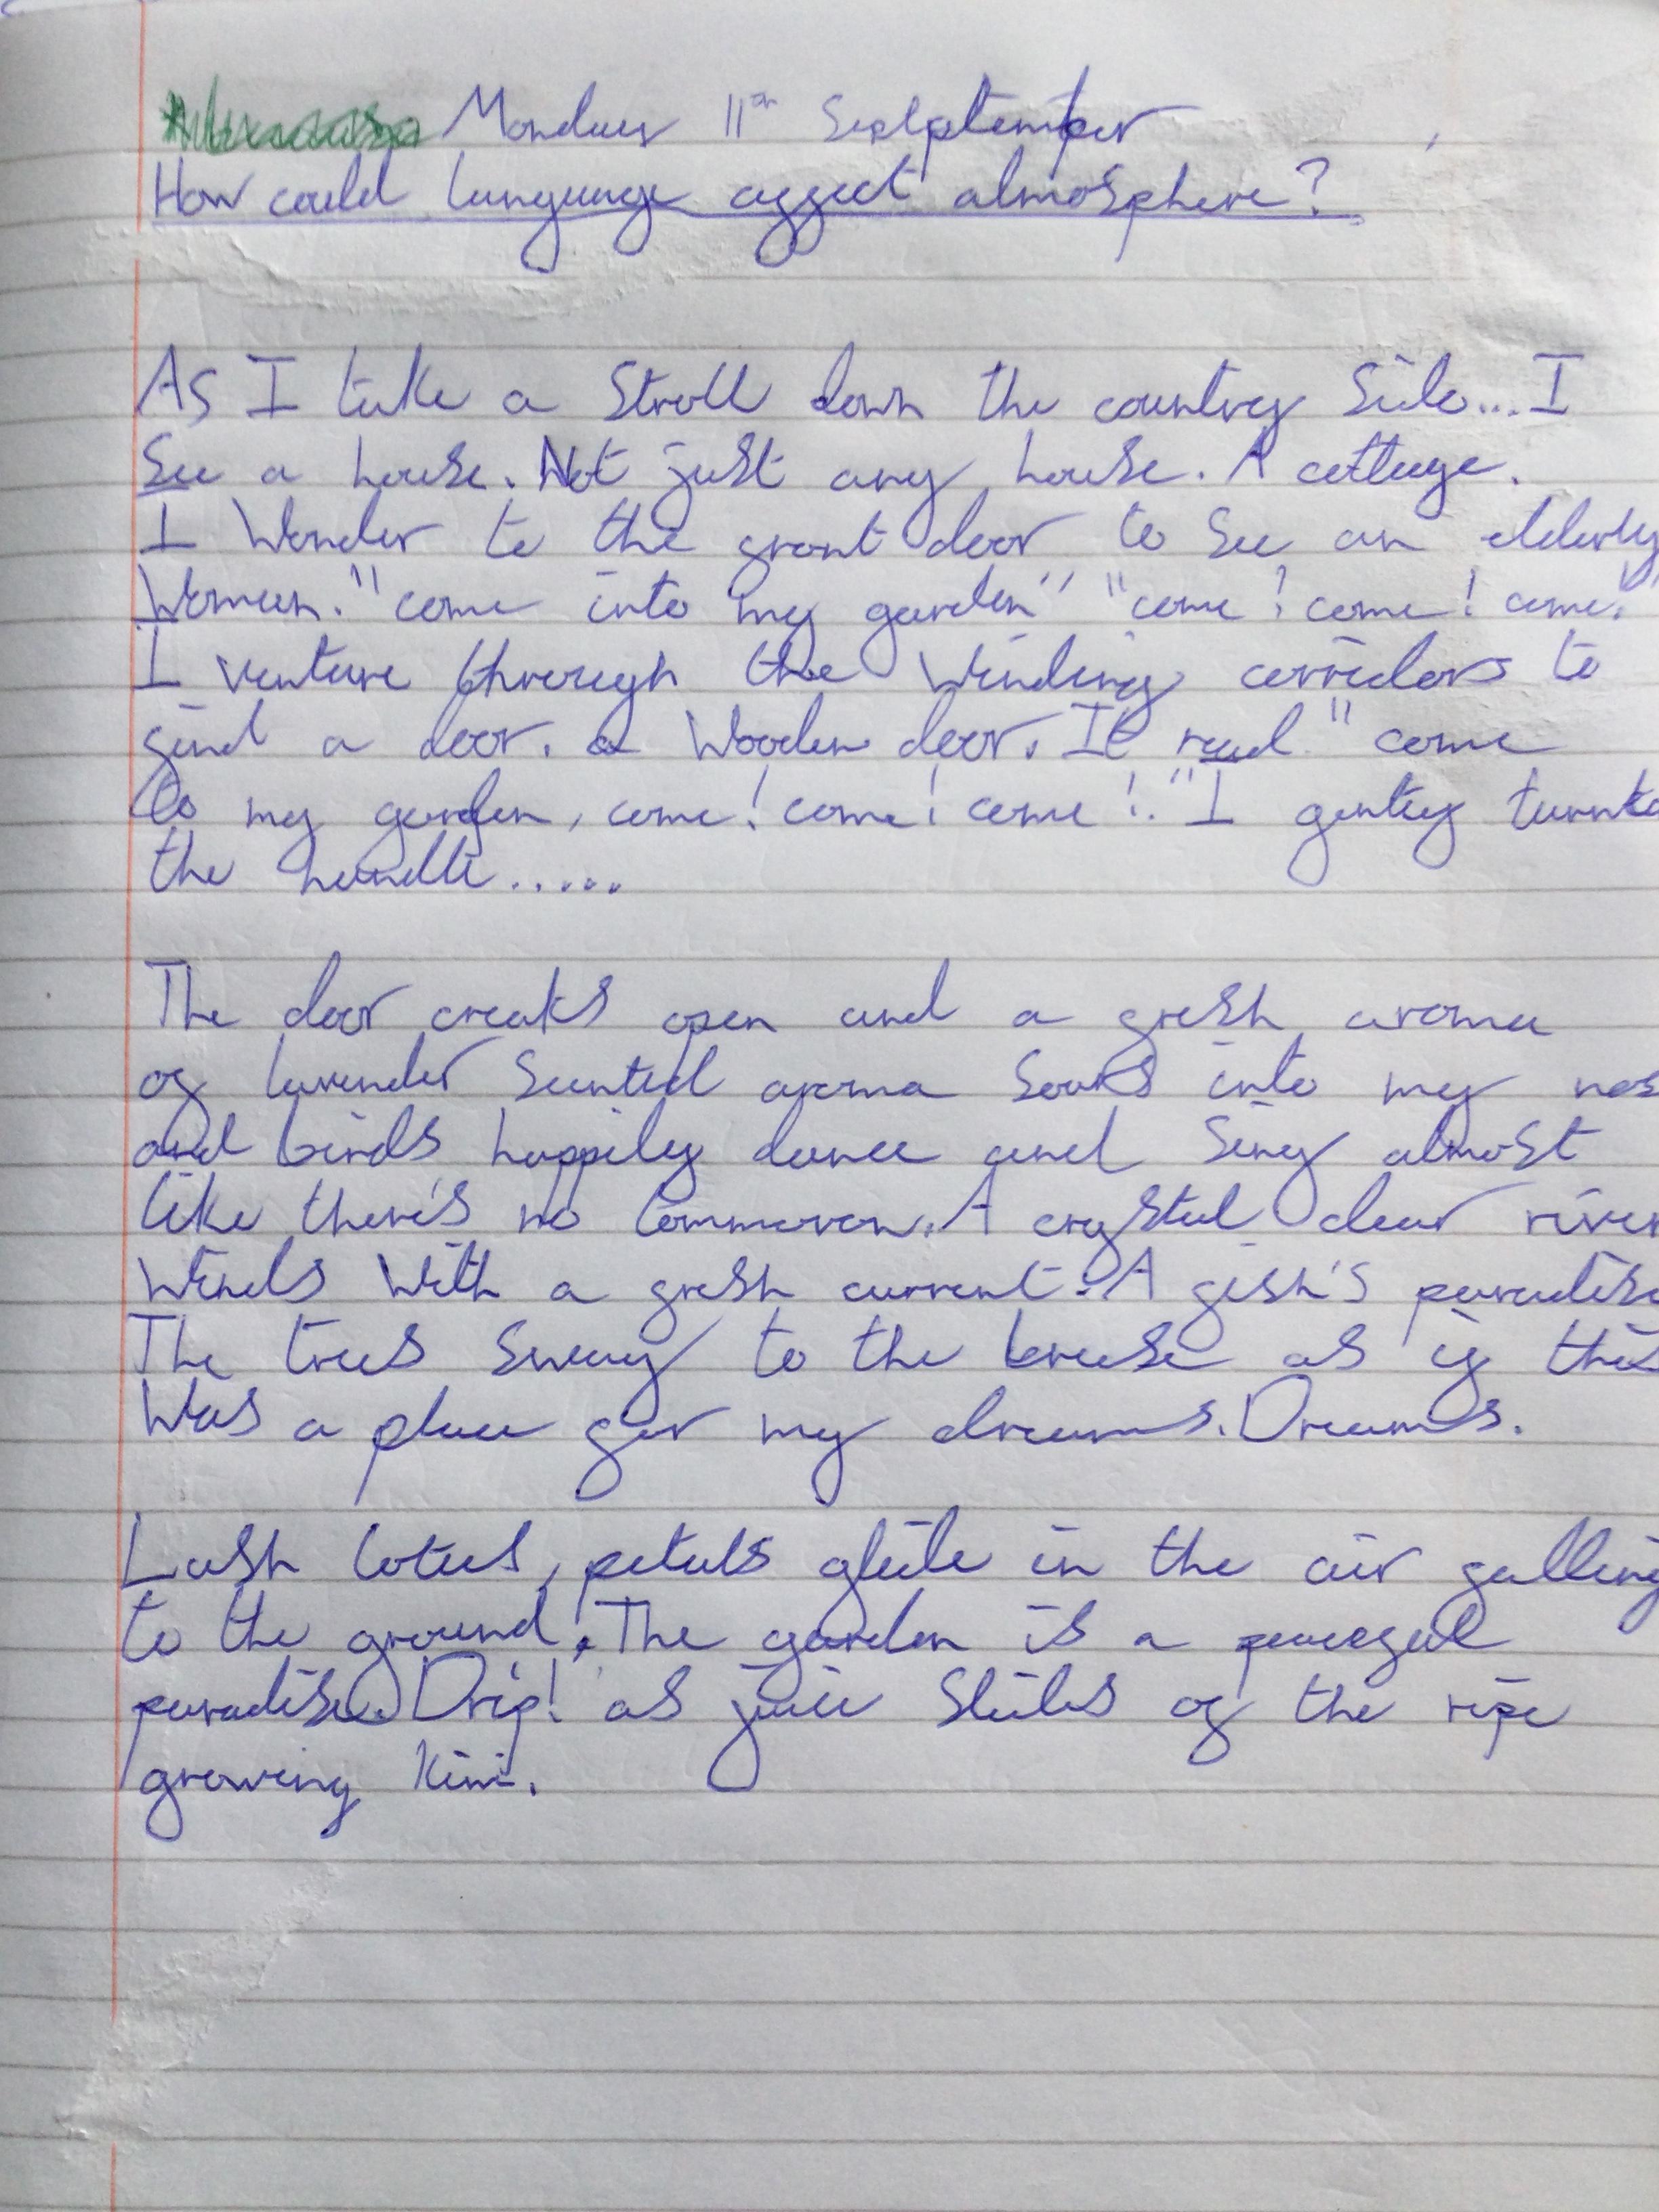 Monday 11th Septptember
How could language affect atmosphere?
As I take a stroll down the country side... I
see a house. Not just any house. A cottage.
I wonder to the front door to see an elderly
women. "come into my garden" "come! come! come."
I venture through the winding corridors to
find a door. a wooden door. It read "come
to my garden, come! come! come!." I gently
the handle.....
The door creaks open and a fresh aroma
of lavender scented aroma soaks into my
and birds happily dance and sing almost
like there's no tommorow. A crystal clear river
winds with a fresh current. A fish's paradise
The trees sway to the breese as if this
was a place for my dreams. Dreams.
Lush lotus, petals glide in the air falling
to the ground. The garden is a peacefull
paradise. Drip! as juice slides of the ripe
growing kiwi.